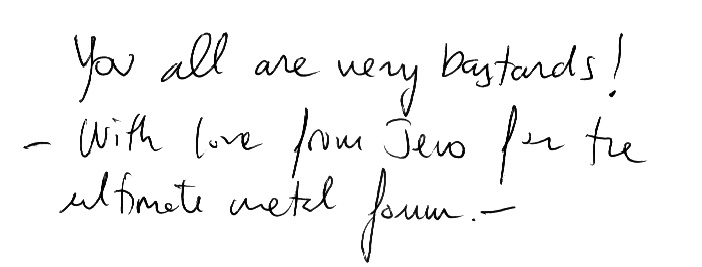 You all are very bastards!
- With love from Jevo for the
ultimate metal forum.-